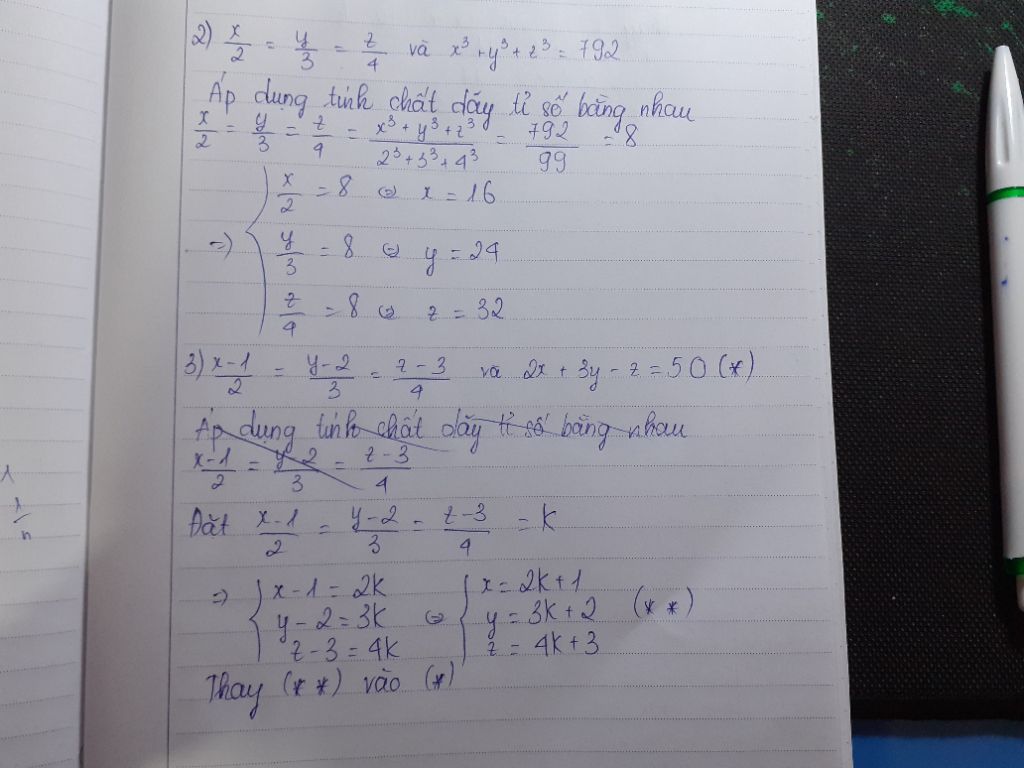 2) x/2 = y/3 = z/4 và x³ + y³ + z³ = 792
Áp dụng tính chất dãy tỉ số bằng nhau
x/2 = y/3 = z/4 = (x³ + y³ + z³)/(2³ + 3³ + 4³) = 792/99 = 8
=> { x/2 = 8 ⇔ x = 16
y/3 = 8 ⇔ y = 24
z/4 = 8 ⇔ z = 32
3) (x-1)/2 = (y-2)/3 = (z-3)/4 và 2x + 3y - z = 50 (*)
Áp dụng tính chất dãy tỉ số bằng nhau
(x-1)/2 = (y-2)/3 = (z-3)/4
Đặt (x-1)/2 = (y-2)/3 = (z-3)/4 = k
=> { x-1 = 2k ⇔ { x = 2k+1
y-2 = 3k y = 3k+2 (**)
z-3 = 4k z = 4k+3
Thay (**) vào (*)